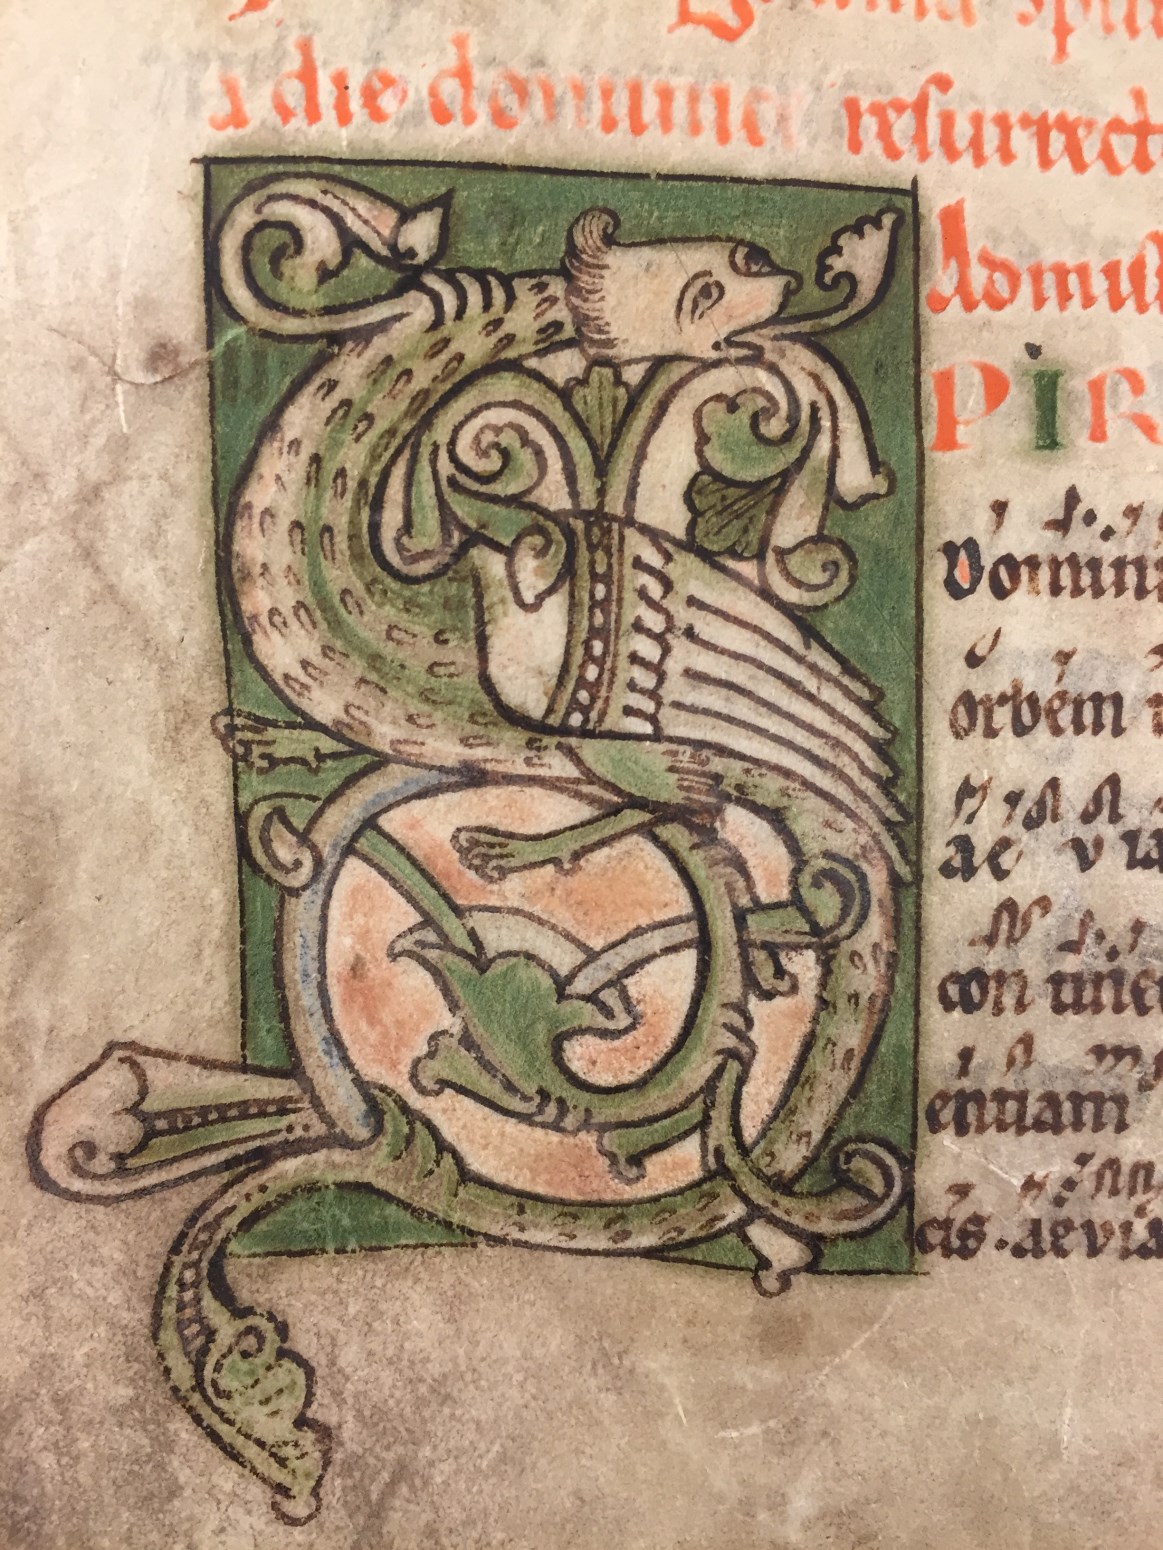 a die dominice resurrect
Admiss
S PiR
Domini
orbem
ac
con tine
entiam
cis · aevia